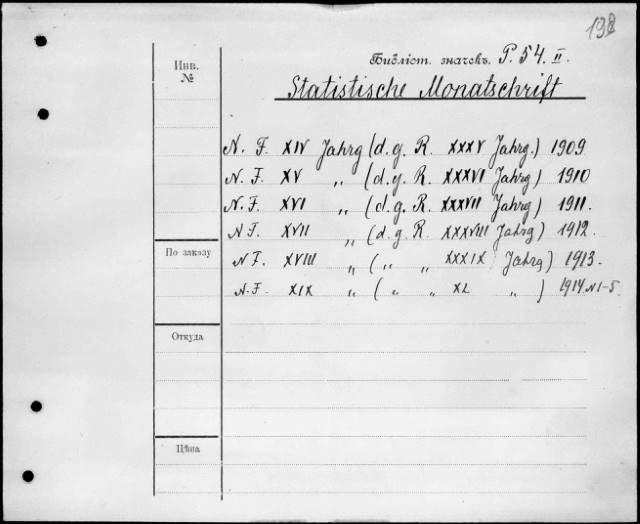 198
Библіот. значекъ. P. 54. II.
Инв.
№
Statistische Monatschrift
N. F. XIV Jahrg (d. g. R. XXXV Jahrg.) 1909
N. F. XV „ (d. g. R. XXXVI Jahrg) 1910
N. F. XVI „ (d. g. R. XXXVII Jahrg) 1911.
N F. XVII „ (d. g. R. XXXVIII Jahrg) 1912.
По заказу
N F. XVIII „ („ „ XXXIX Jahrg) 1913.
N. F. XIX „ („ „ XL „) 1914 N 1-5.
Откуда
Цѣна